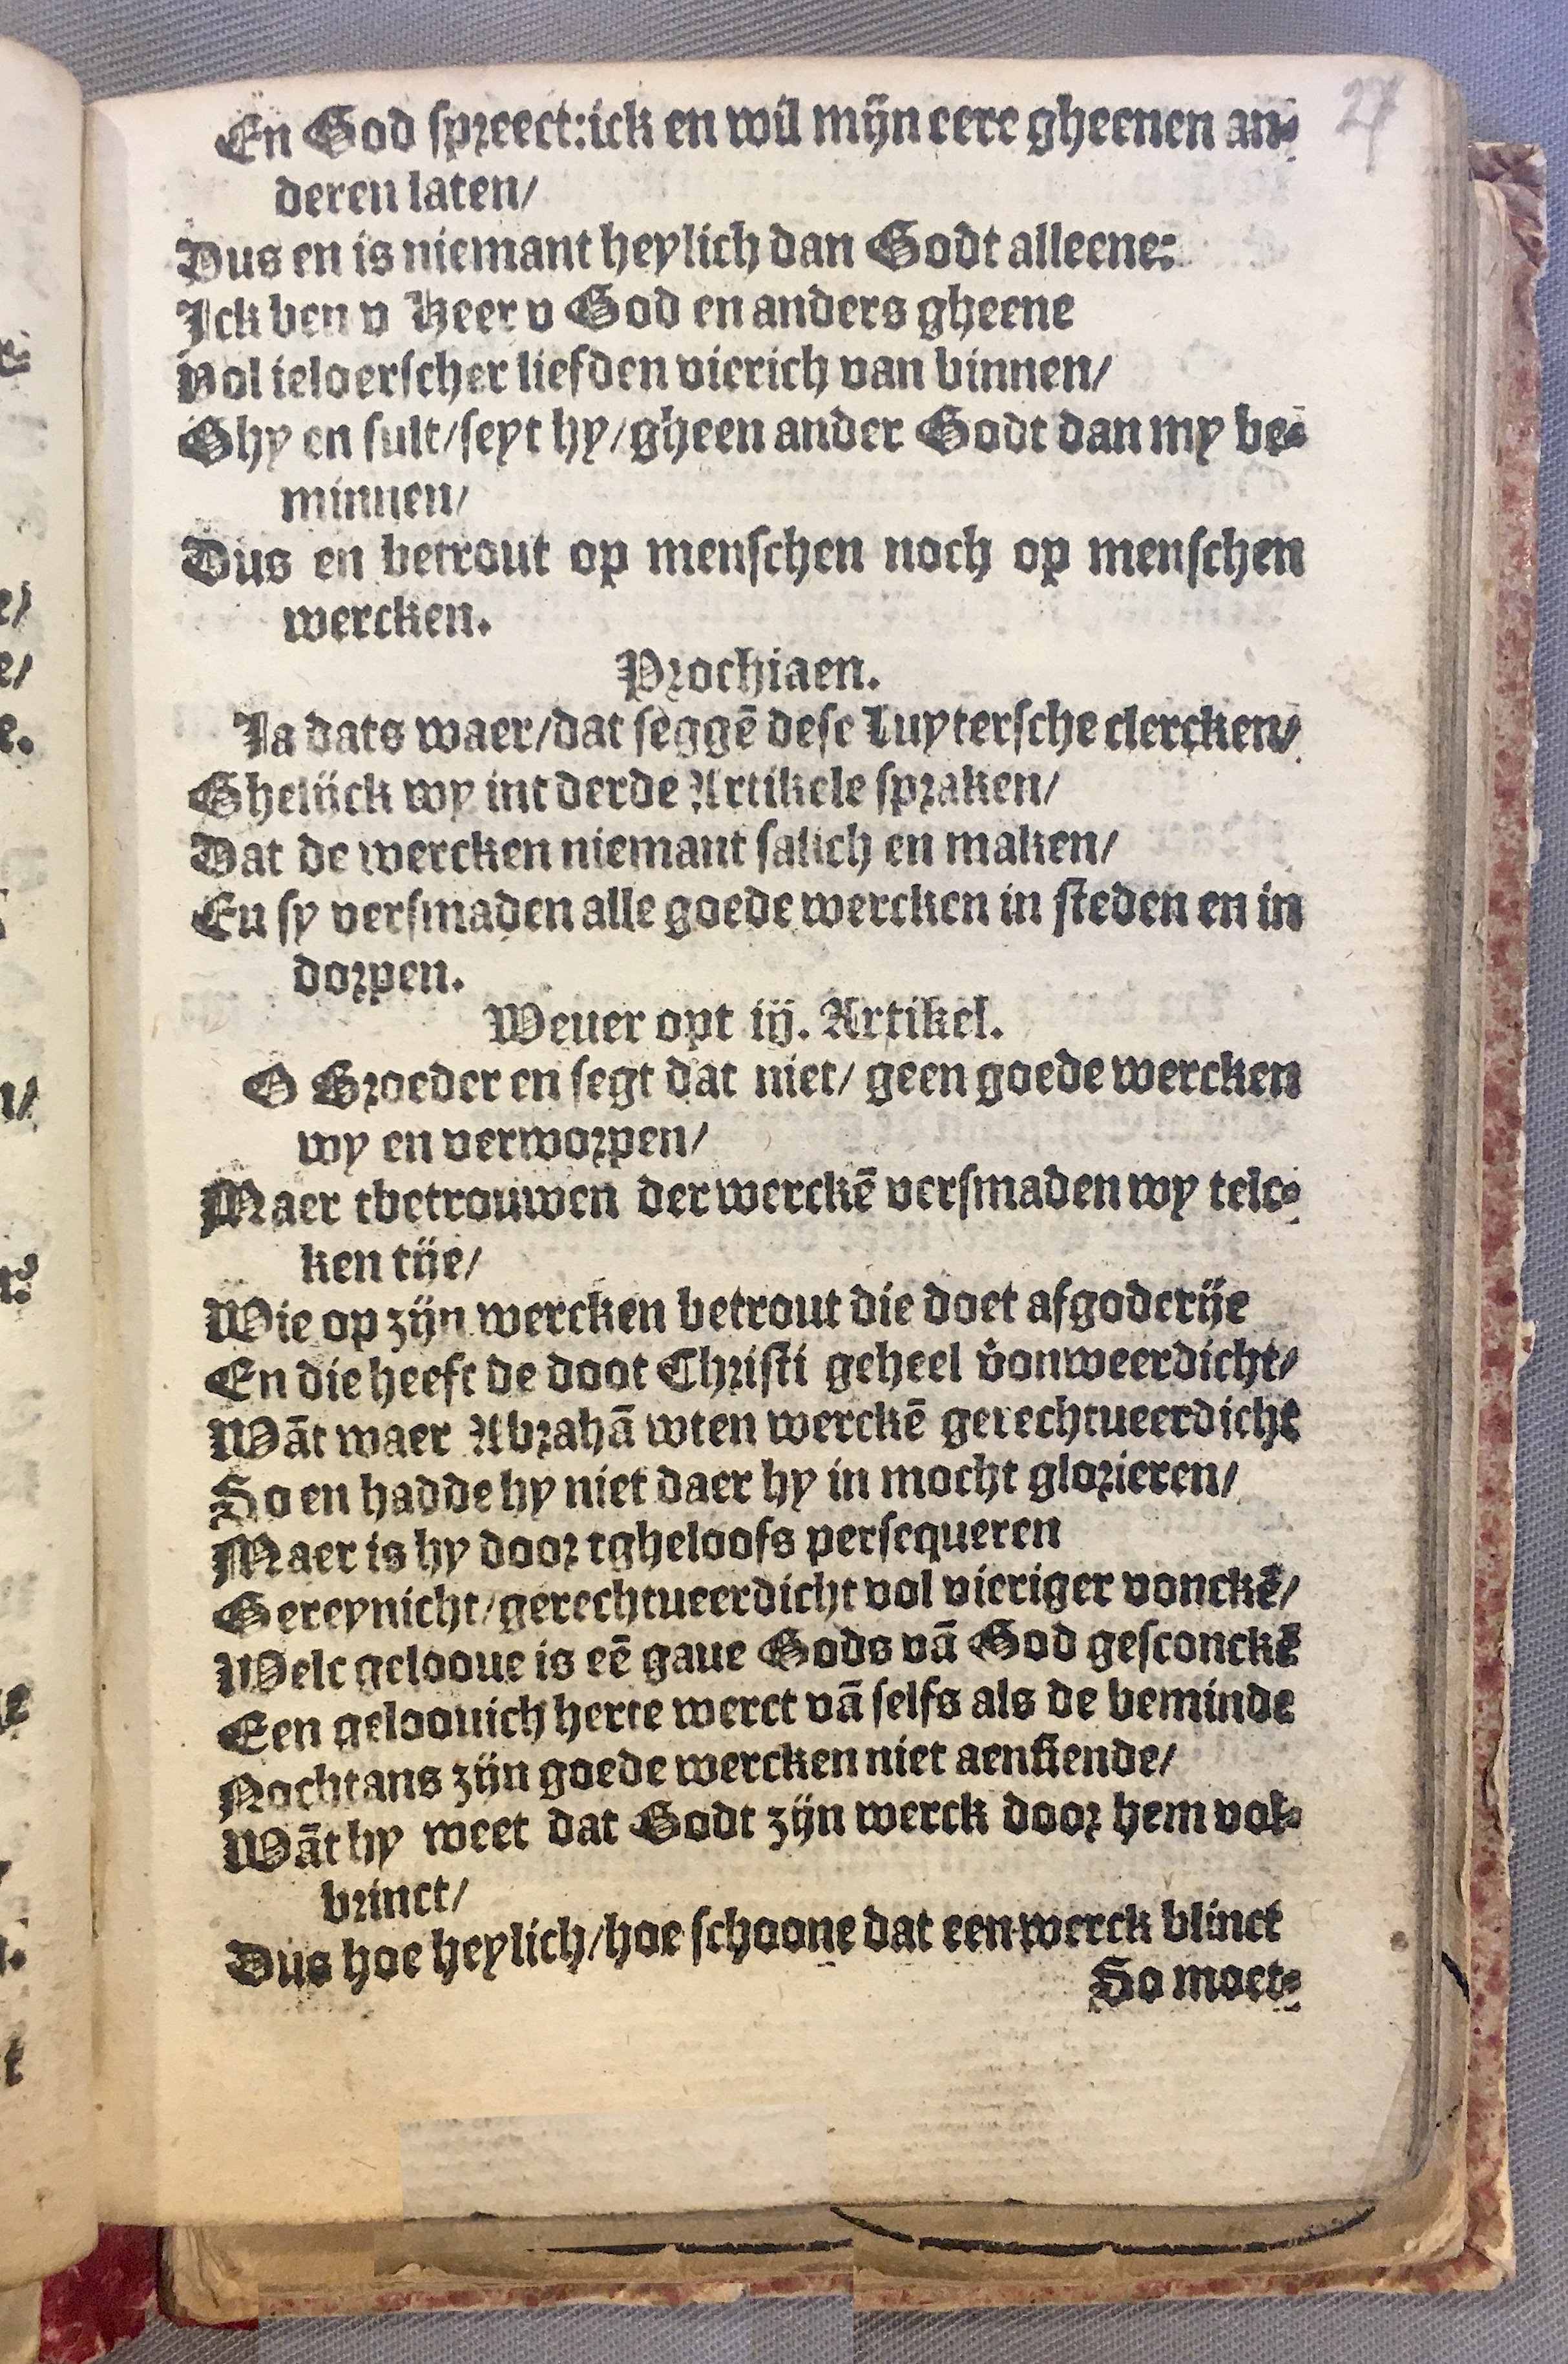 27
En God spreect:ick en wil mijn eere gheenen an-
deren laten/
Dus en is niemant heylich dan Godt alleene:
Ick ben v Heer v God en anders gheene
Vol ieloerscher liefden vierich van binnen/
Ghy en sult/seyt hy/gheen ander Godt dan my be-
minnen/
Dus en betrout op menschen noch op menschen
wercken.
Prochiaen.
Ja dats waer/dat seggē dese Luytersche clercken/
Ghelijck wy int derde Artikele spraken/
Dat de wercken niemant salich en maken/
En sy versmaden alle goede wercken in steden en in
dorpen.
Wever opt iij. Artikel.
O Broeder en segt dat niet/ geen goede wercken
wy en verworpen/
Maer tbetrouwen der werckē versmaden wy telc-
ken tije/
Wie op zijn wercken betrout die doet afgoderije
En die heeft de doot Christi geheel v̊onweerdicht/
Wāt waer Abrahā wten werckē gerechtueerdicht
So en hadde hy niet daer hy in mocht glorieren/
Maer is hy door tgheloofs persequeren
Gereynicht/gerechtueerdicht vol vieriger vonckē/
Welc geloove is eē gaue Gods vā God gesconckē
Een geloouich herte werct vā selfs als de beminde
Nochtans zijn goede wercken niet aensiende/
Wāt hy weet dat Godt zijn werck door hem vol-
brinct/
Dus hoe heylich/hoe schoone dat een werck blinct
So moet-